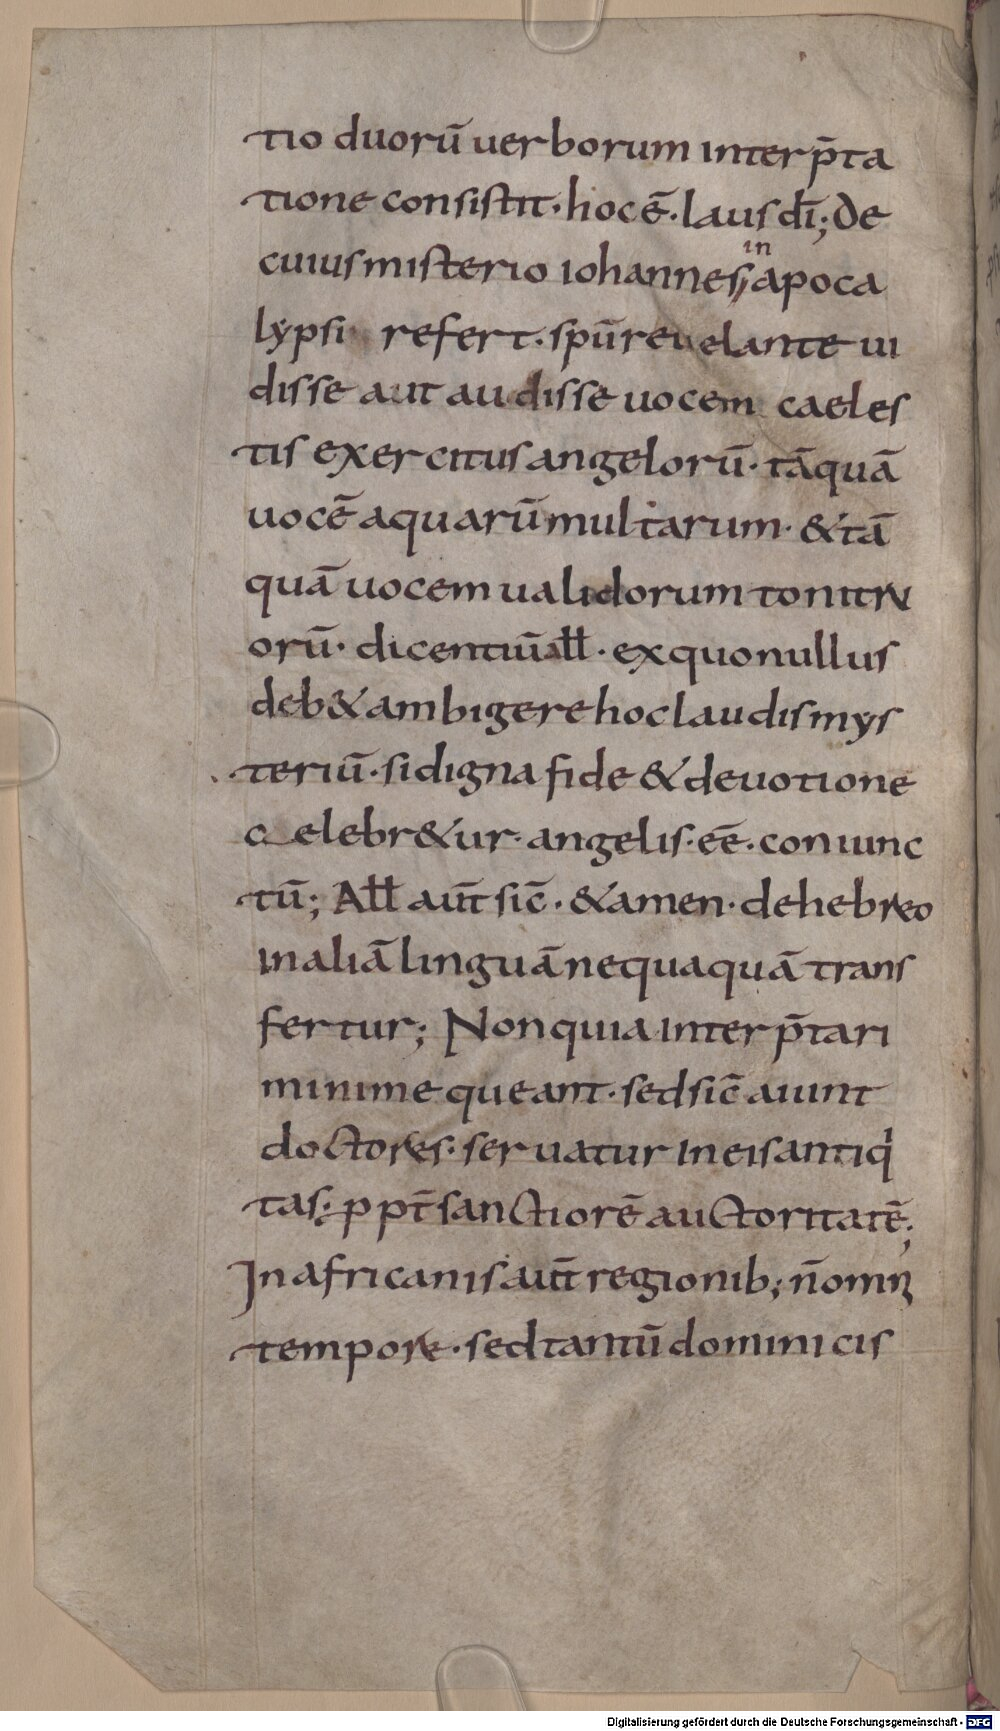 tio duorū uerborum interp̄ta
tione consistit· hoc ē· laus dī; De
cuius misterio iohannes, in apoca
lypsi refert· sp̄u reuelante ui
disse aut audisse uocem caeles
tis exercitus angelorū· tāquā
uocē aquarū multarum· & tā
quā uocem ualidorum tonitru
orū· dicentiū all̄· ex quo nullus
deb& ambigere hoc laudis mys
teriū· si digna fide & deuotione
celebr&ur· angelis· eē· coniunc
tū; All̄ aut̄ sic̄· & amen· de hebreo
in aliā linguā nequaquā trans
fertur; Non quia interp̄tari
minime queant· sed sic̄ aiunt
doctores· seruatur in eis antiq
tas; ppt̄ sanctiorē auctoritatē;
In africanis aut̄ regionib; n̄ omī
tempore· sed tantū dominicis
Digitalisierung gefördert durch die Deutsche Forschungsgemeinschaft - DFG